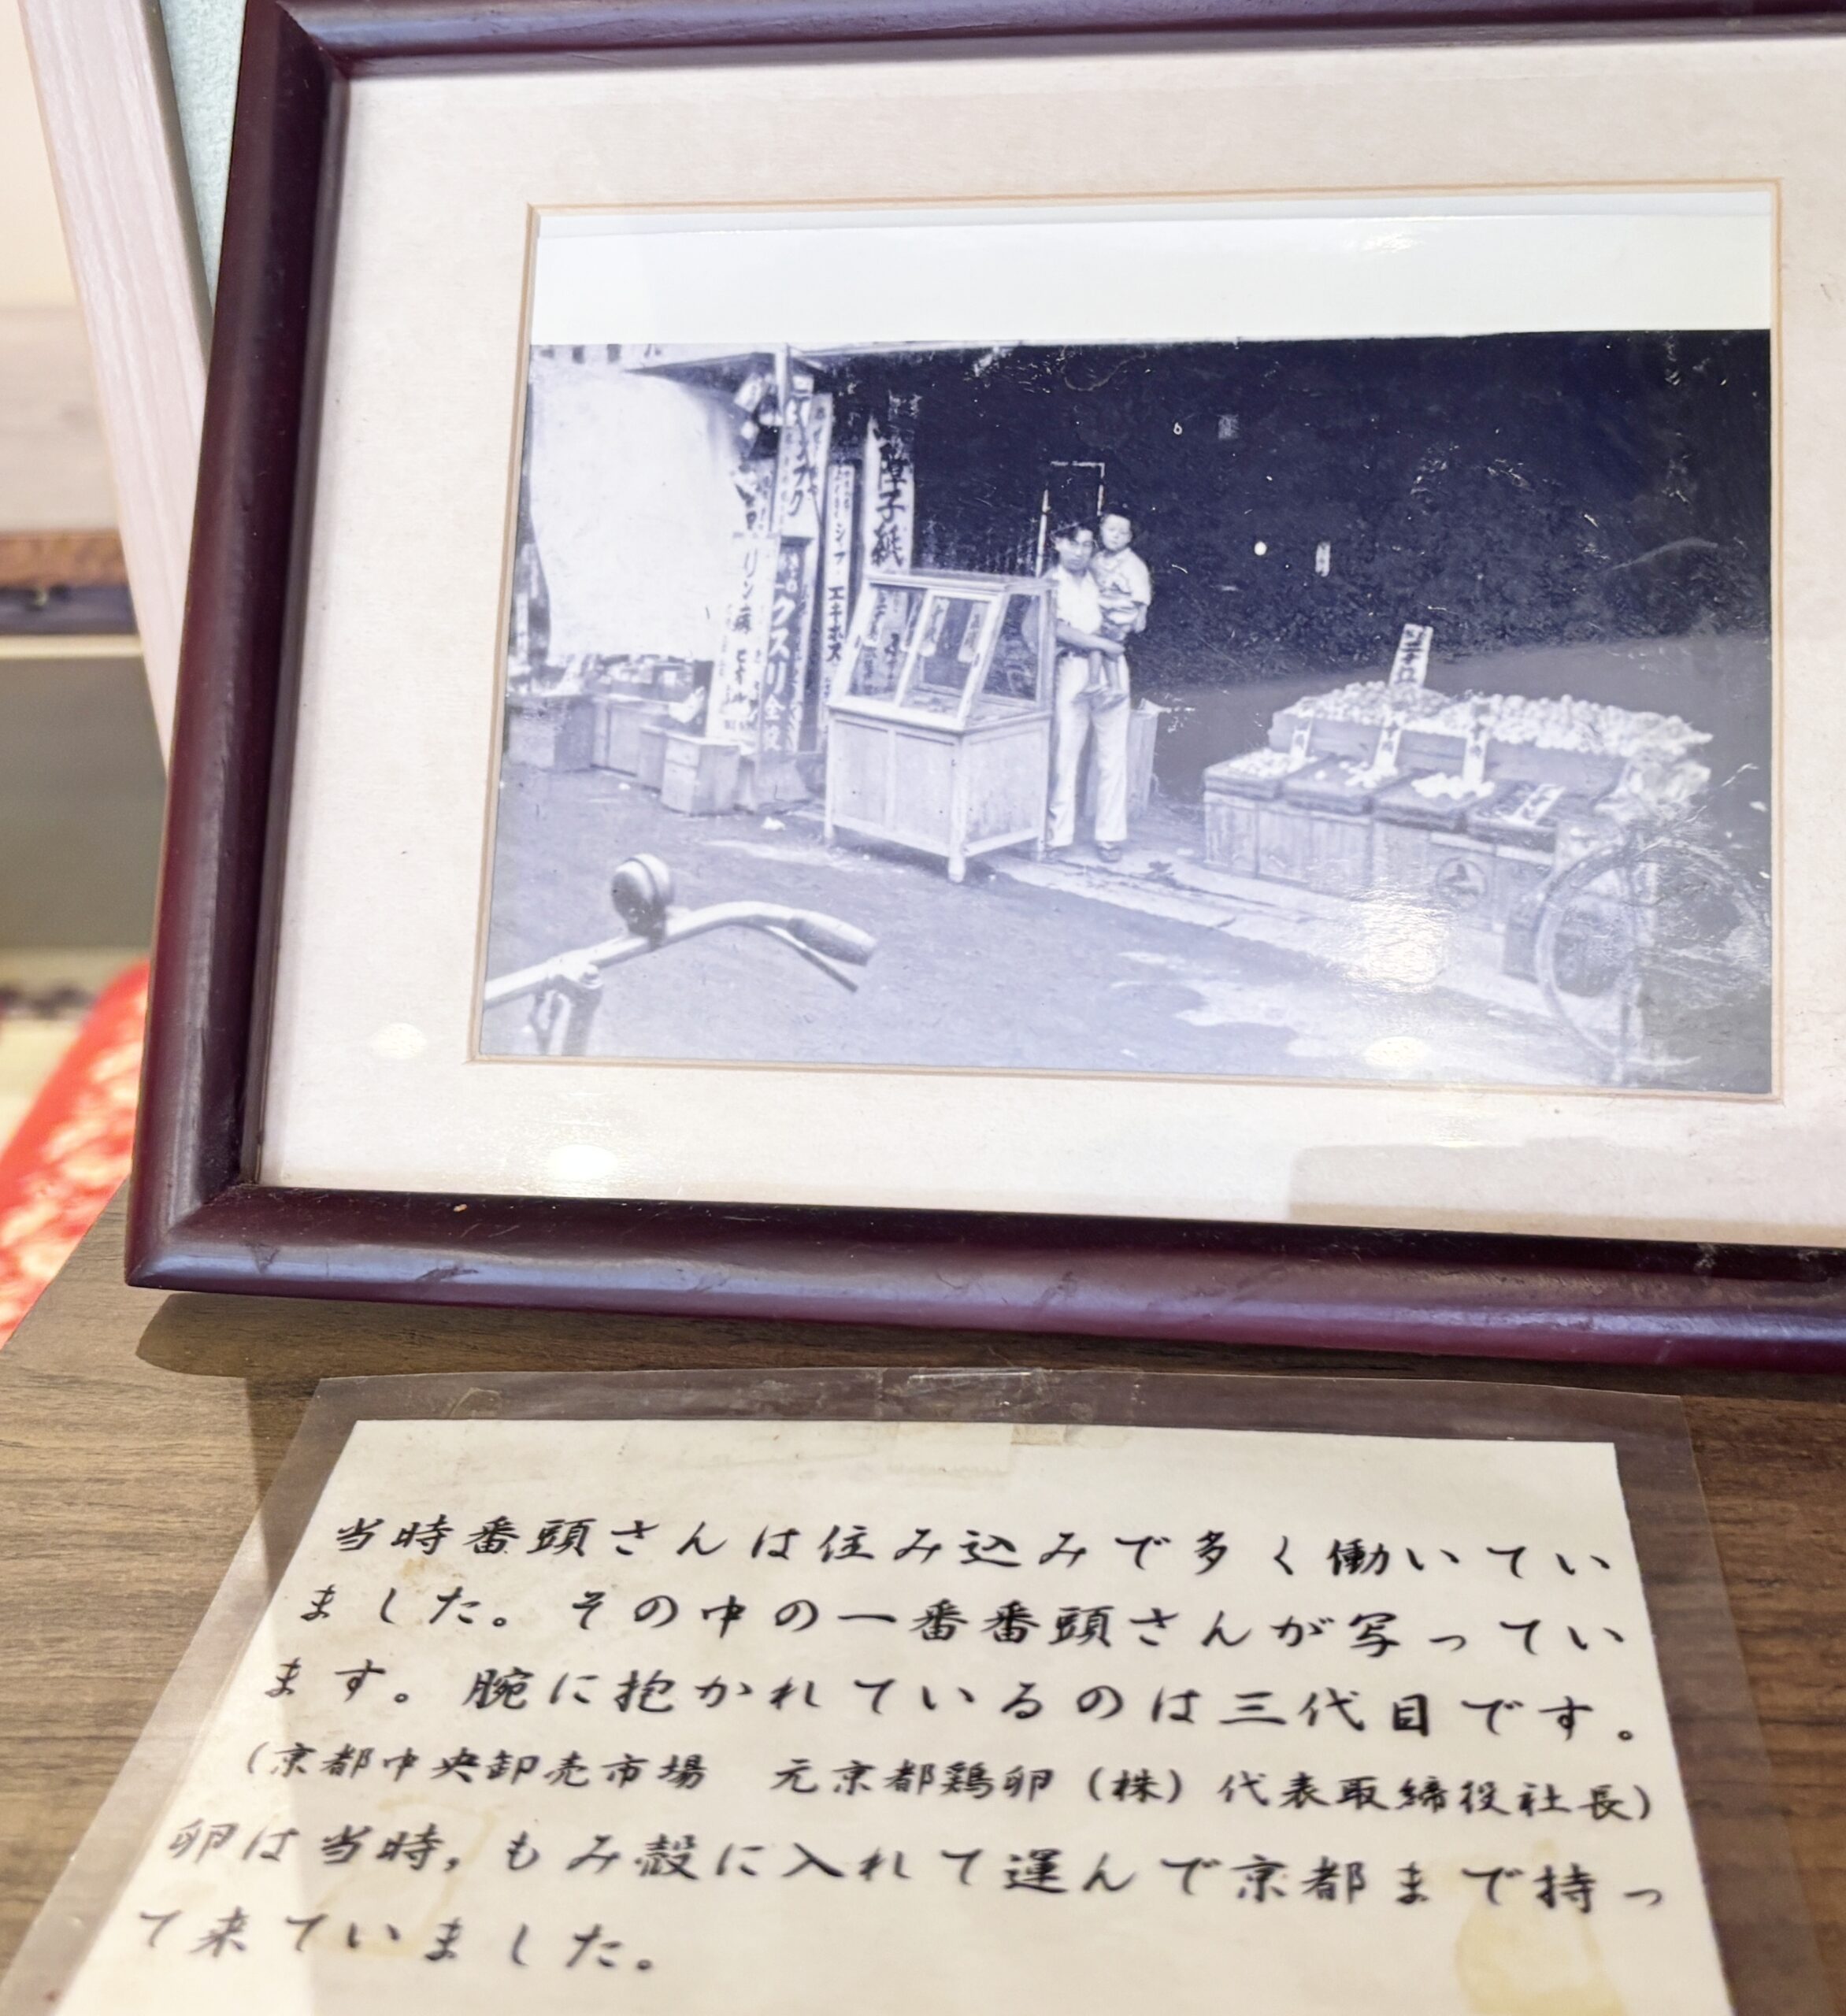 障子紙
クスリ
エキホス
当時番頭さんは住み込みで多く働いてい
ました。その中の一番番頭さんが写ってい
ます。腕に抱かれているのは三代目です。
(京都中央卸売市場　元京都鶏卵(株)代表取締役社長)
卵は当時,もみ殻に入れて運んで京都まで持っ
て来ていました。